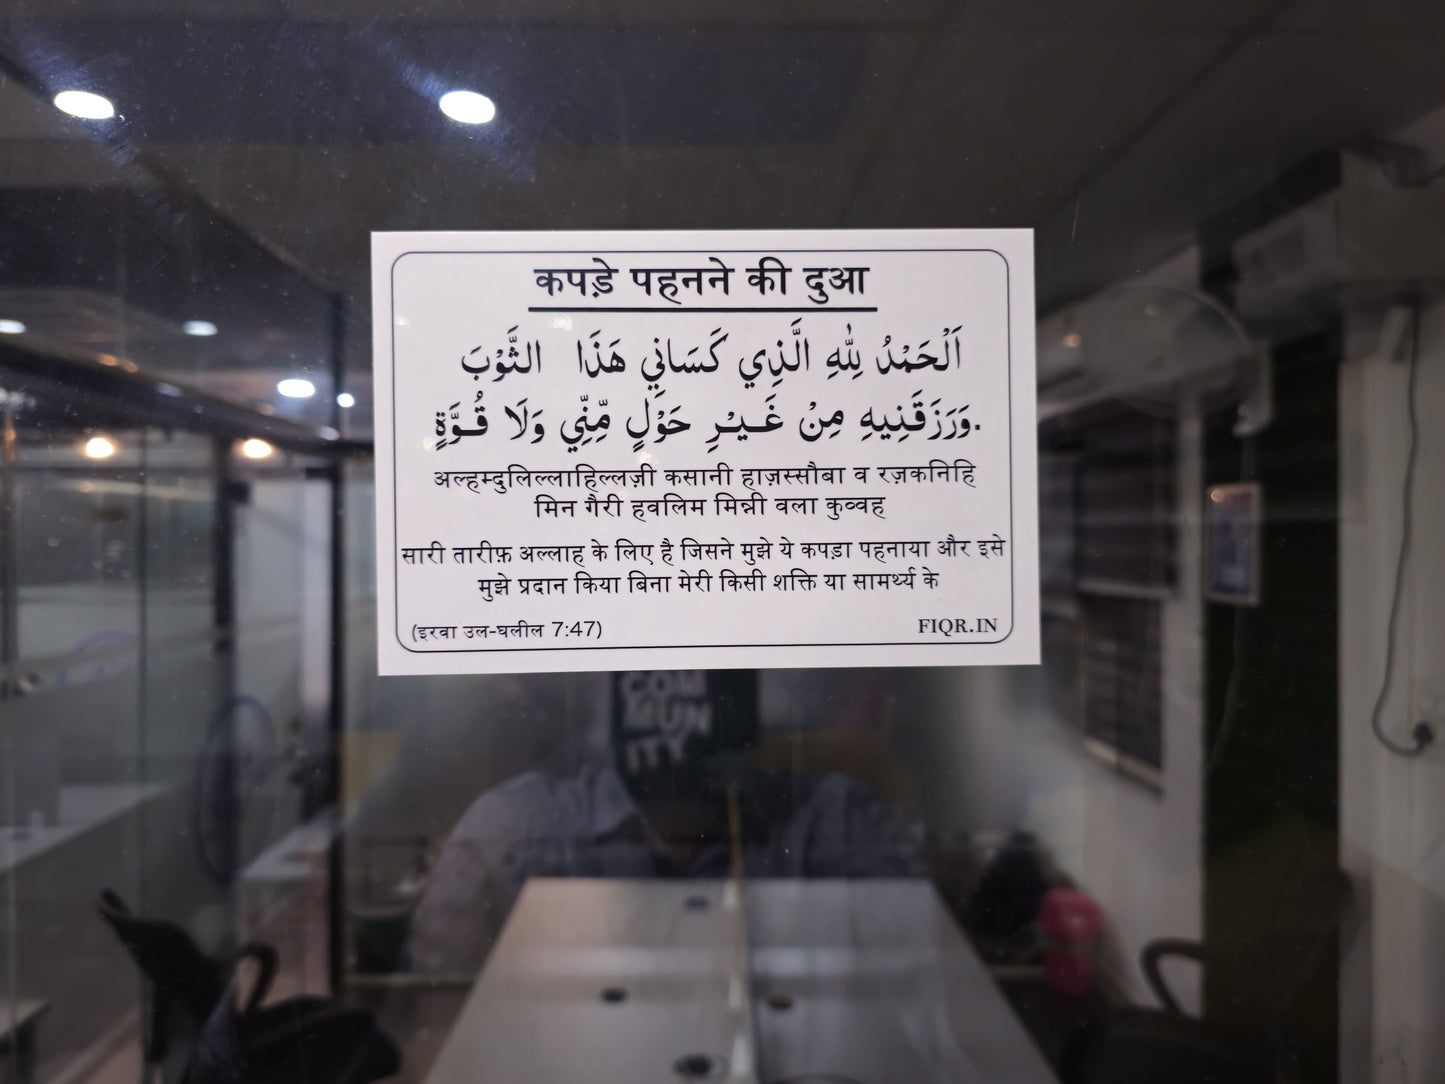 कपड़े पहनने की दुआ
اَلْحَمْدُ لِلّٰهِ الَّذِي كَسَانِي هَذَا الثَّوْبَ
وَرَزَقَنِيهِ مِنْ غَـيـْرِ حَوْلٍ مِّنِّي وَلَا قُـوَّةٍ.
अल्हम्दुलिल्लाहिल्लज़ी कसानी हाज़स्सौबा व रज़कनिहि
मिन गैरी हवलिम मिन्नी वला कुव्वह
सारी तारीफ़ अल्लाह के लिए है जिसने मुझे ये कपड़ा पहनाया और इसे
मुझे प्रदान किया बिना मेरी किसी शक्ति या सामर्थ्य के
(इरवा उल-घलील 7:47)
FIQR.IN
COM
MUN
ITY